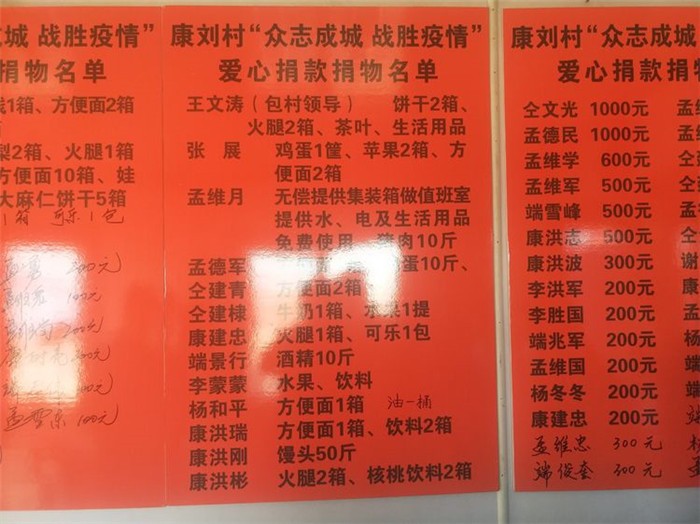 成城 战胜疫情”
捐物名单
1箱、方便面2箱
梨2箱、火腿1箱
方便面10箱、娃
大麻仁饼干5箱
1箱 可乐1包
康刘村“众志成城 战胜疫情”
爱心捐款捐物名单
王文涛（包村领导） 饼干2箱、
火腿2箱、茶叶、生活用品
张 展 鸡蛋1筐、苹果2箱、方
便面2箱
孟维月 无偿提供集装箱做值班室
提供水、电及生活用品
免费使用 猪肉10斤
孟德军 蛋10斤、
仝建青 方便面2箱、
仝建棣 牛奶1箱、水果1提
康建忠 火腿1箱、可乐1包
端景行 酒精10斤
李蒙蒙 水果、饮料
杨和平 方便面1箱 油一桶
康洪瑞 方便面1箱、饮料2箱
康洪刚 馒头50斤
康洪彬 火腿2箱、核桃饮料2箱
康刘村“众志成城
爱心捐款捐物
仝文光 1000元
孟德民 1000元
孟维学 600元
孟维军 500元
端雪峰 500元
康洪志 500元
康洪波 300元
李洪军 200元
李胜国 200元
端兆军 200元
孟维国 200元
杨冬冬 200元
康建忠 200元
孟维忠 300元
端俊奎 200元